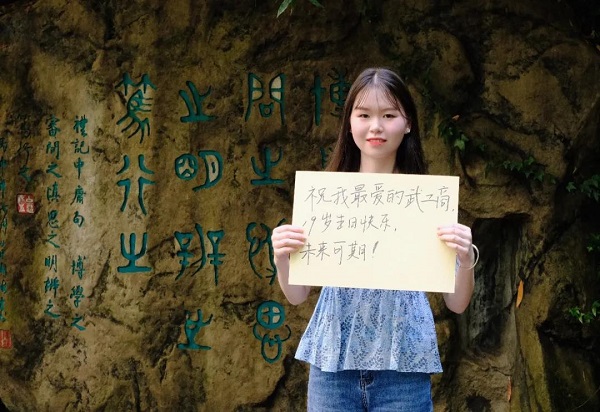 博
問之慎思
之明辨之
篤行之
禮記中庸句 博學之
審問之慎思之明辨之
篤行之
祝我最爱的武工商,
19岁生日快乐,
未来可期!